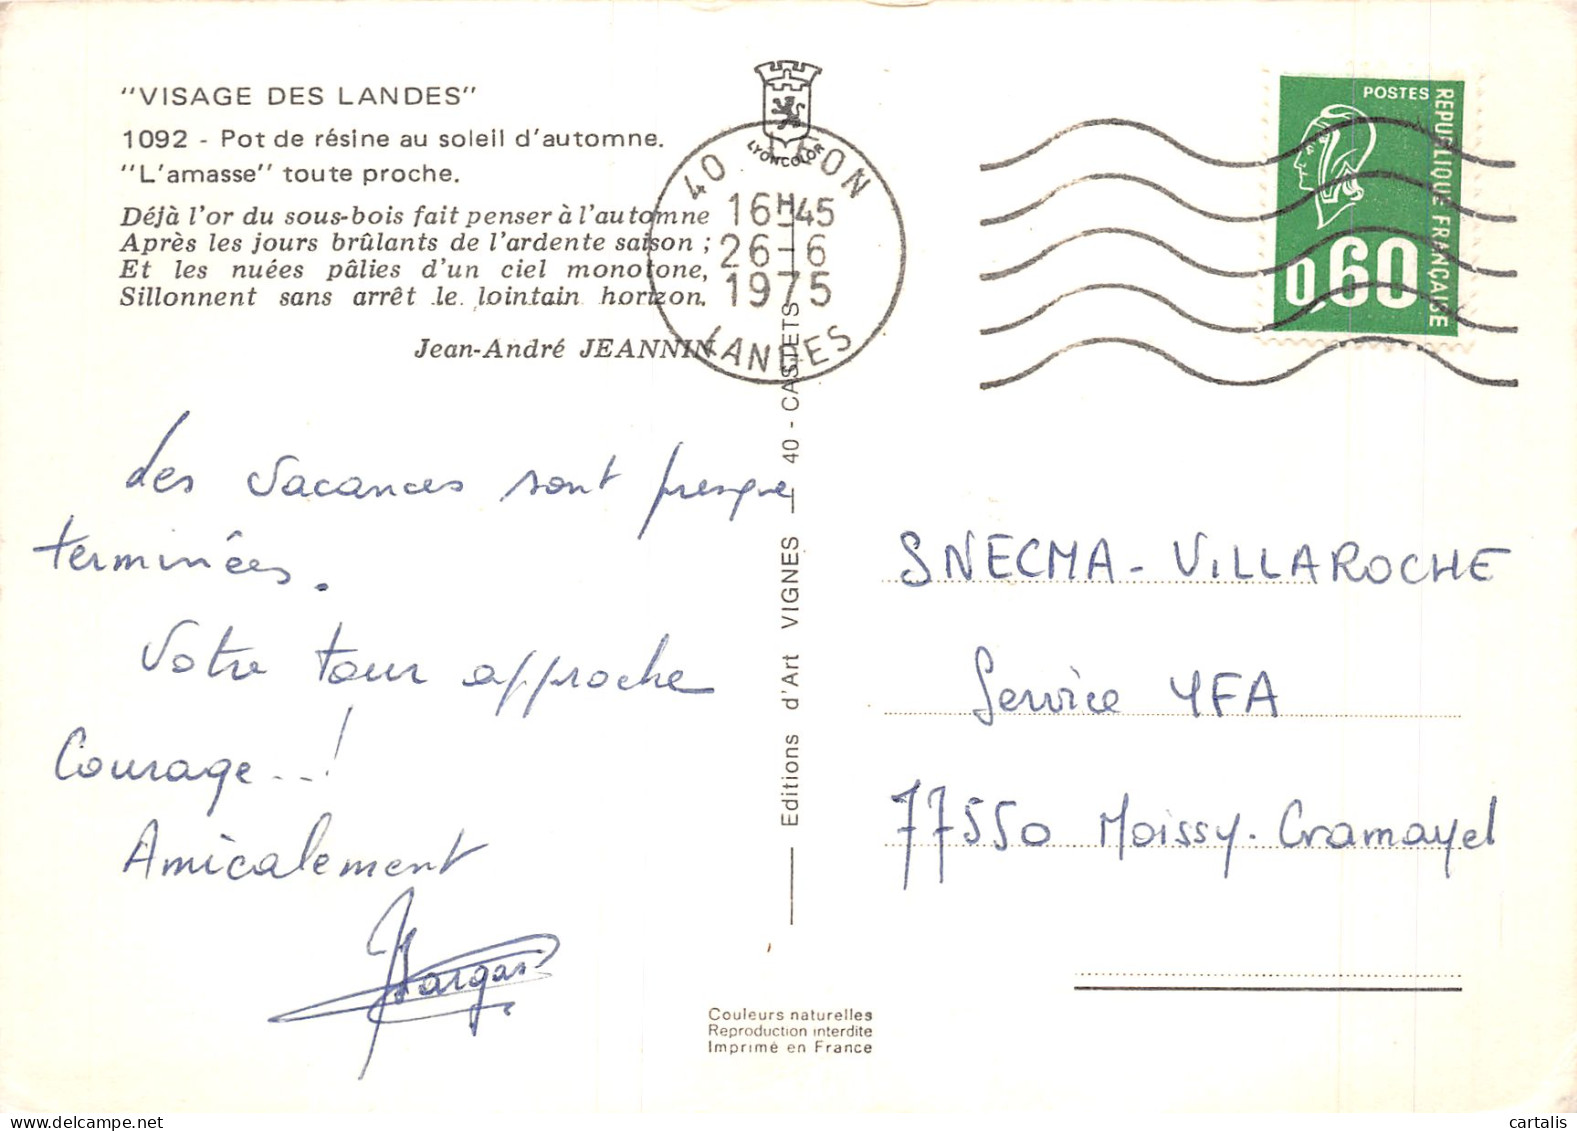 "VISAGE DES LANDES"
1092 - Pot de résine au soleil d'automne.
"L'amasse" toute proche.
Déjà l'or du sous-bois fait penser à l'automne
Après les jours brûlants de l'ardente saison ;
Et les nuées pâlies d'un ciel monotone,
Sillonnent sans arrêt le lointain horizon.
Jean-André JEANNIN
LYONCOLOR
40 LEON
16H45
26-6
1975
LANDES
POSTES
REPUBLIQUE FRANÇAISE
0,60
Les vacances sont presque
terminées.
Votre tour approche
Courage...!
Amicalement
Editions d'Art VIGNES - 40 - CASTETS
SNECMA - VILLAROCHE
Service YFA
77550 Moissy-Cramayel
Couleurs naturelles
Reproduction interdite
Imprimé en France
cartalis